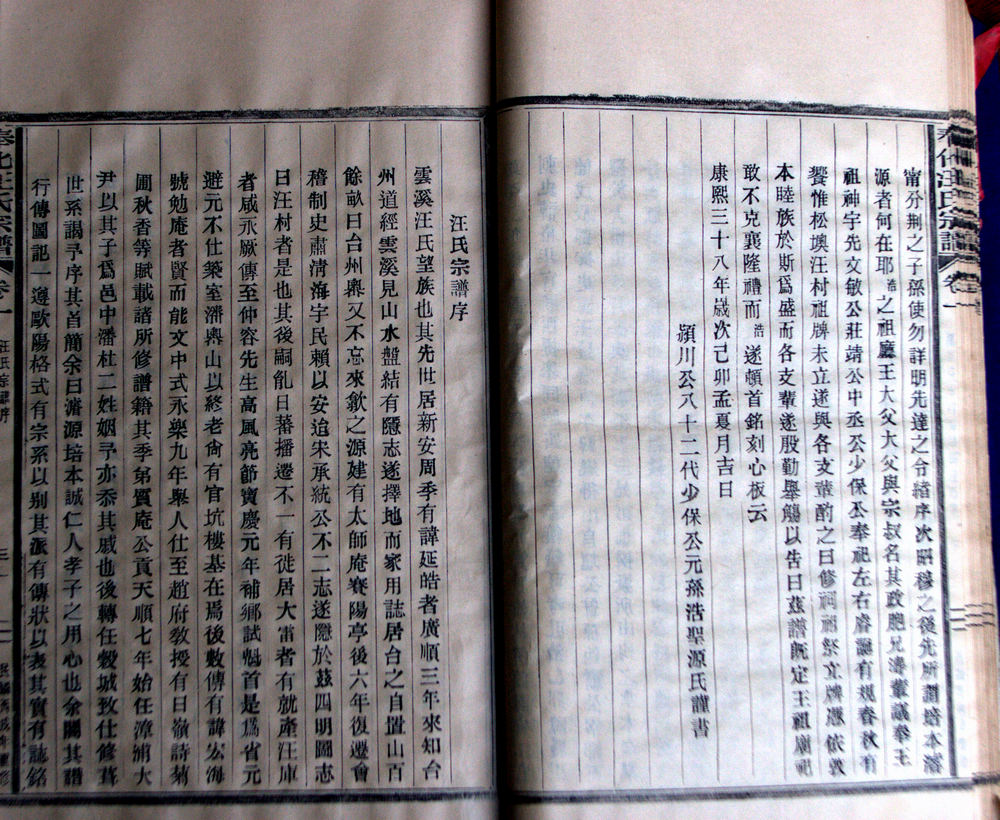 奉化汪氏宗譜 卷一
甯分荆之子孫使勿詳明先達之令緒序次昭穆之後先所謂培本濬
源者何在耶浩之祖廳王大父大父與宗叔名其政胞兄濤叢議奉王
祖神宇先文敏公莊靖公中丞公少保公奉祀左右 有規春秋有
饗惟松墺汪村祖牌未立遂與各支輩酌之曰修祠祖祭立牌憑依敦
本睦族於斯爲盛而各支輩遂殷勤舉觴以告曰茲譜既定王祖廟祀
敢不克襄隆禮而浩遂頓首銘刻心板云
康熙三十八年歲次己卯孟夏月吉日
潁川公八十二代少保公元孫浩聖源氏謹書
汪氏宗譜序
雲溪汪氏望族也其先世居新安周季有諱延皓者廣順三年來知台
州道經雲溪見山水盤結有隱志遂擇地而家用誌居台之自置山百
餘畝曰台州輿又不忘來歙之源建有太師庵賽陽亭後六年復遷會
稽制史肅清海宇民賴以安迨宋承統公不二志遂隱於茲四明圖志
曰汪村者是也其後嗣胤日蕃播遷不一有徙居大甯者有就產汪庫
者咸永厥傳至仲容先生高風亮節寶慶元年補鄉試魁首是爲省元
避元不仕築室濟輿山以終老尙有官坑樓基在焉後數傳有諱宏海
號勉庵者賢而能文中式永樂九年舉人仕至趙府敎授有日嶺詩菊
圃秋香等賦載諸所修譜籍其季弟質庵公貢天順七年始任漳浦大
尹以其子爲邑中潘杜二姓姻予亦忝其戚也後轉任穀城致仕修葺
世系謁予序其首簡余曰濬源培本誠仁人孝子之用心也余閱其譜
行傳圖記一遵歐陽格式有宗系以别其派有傳狀以表其實有誌銘
奉化汪氏宗譜 卷一 汪氏宗譜序